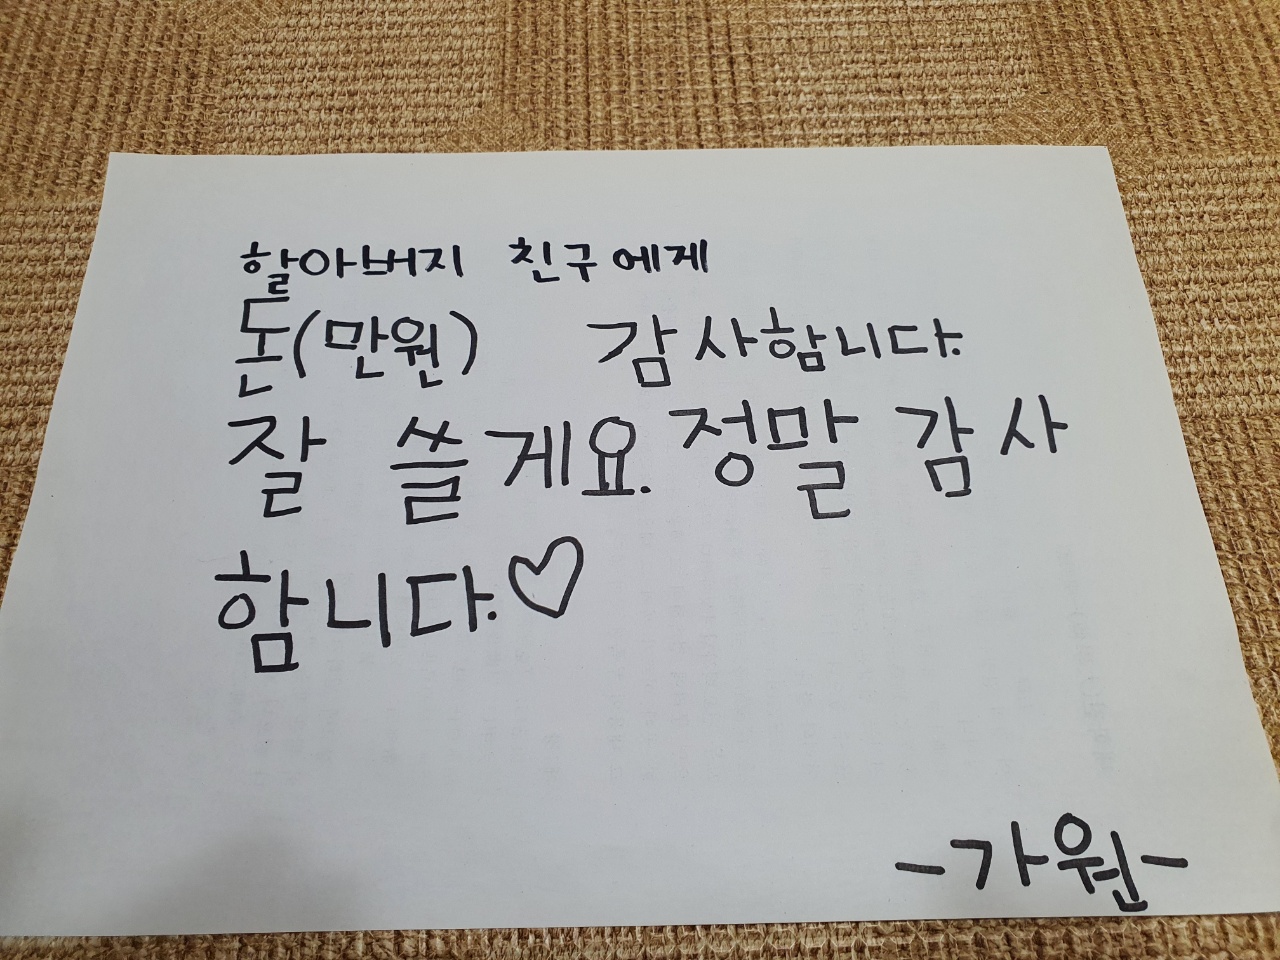 할아버지 친구에게
돈(만원) 감사합니다.
잘 쓸게요. 정말 감사
합니다.♡
-가원-